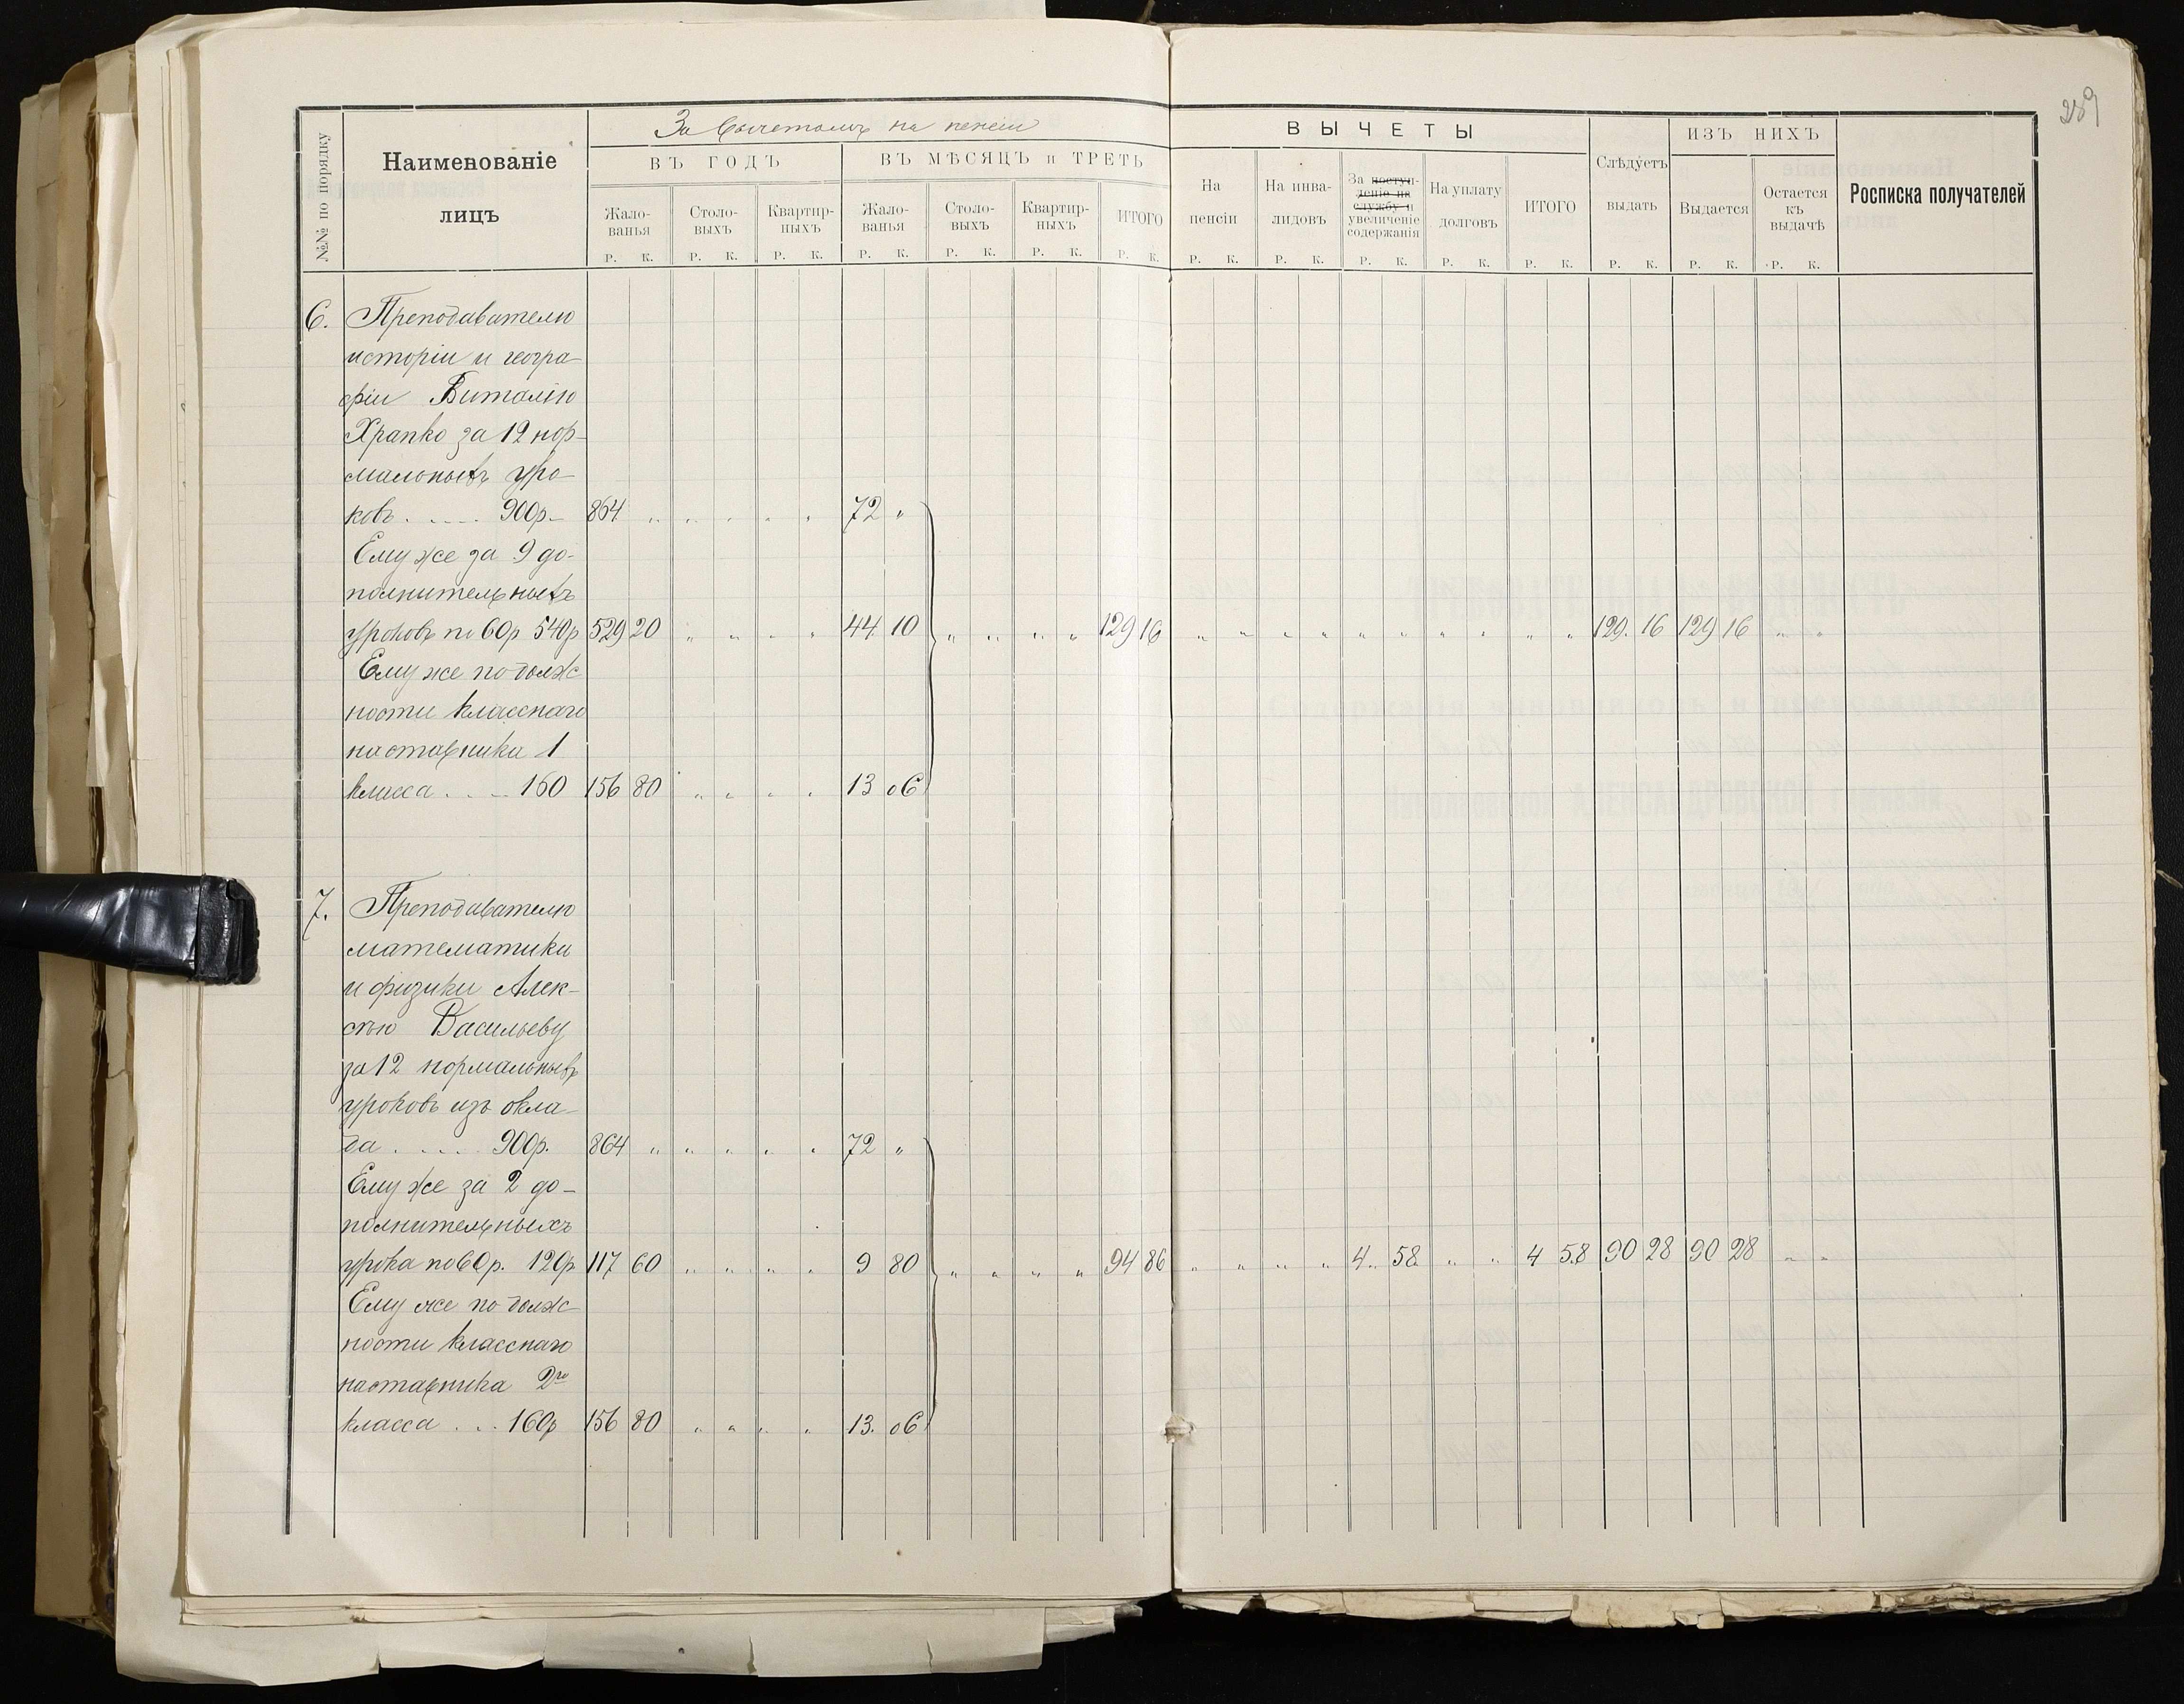 289
За вычетомъ на пенсіи
№№ по порядку
Наименованіе
лицъ
ВЪ ГОДЪ
ВЪ МѢСЯЦЪ и ТРЕТЬ
Жало-
ванья
Столо-
выхъ
Квартир-
ныхъ
Жало-
ванья
Столо-
выхъ
Квартир-
ныхъ
ИТОГО
Р. К. Р. К. Р. К. Р. К. Р. К. Р. К. Р. К.
ВЫЧЕТЫ
На
пенсіи
На инва-
лидовъ
За поступ-
леніе на
службу и
увеличеніе
содержанія
На уплату
долговъ
ИТОГО
Слѣдуетъ
выдать
ИЗЪ НИХЪ
Выдается
Остается
къ
выдачѣ
Росписка получателей
Р. К. Р. К. Р. К. Р. К. Р. К. Р. К. Р. К. Р. К.
6. Преподавателю
исторіи и геогра-
фіи Виталію
Храпко за 12 нор-
мальныхъ уро-
ковъ . . . . . 900р. 864 " " " " " 72 "
Ему же за 9 до-
полнительныхъ
уроковъ по 60р 540р 529 20 " " " " 44 10 " " " " 129 16 " " " " " " " " " " 129. 16 129 16 " "
Ему же по долж
ности класснаго
наставника 1
класса . . . 160 156 80 " " " " 13 06
7. Преподавателю
математики
и физики Алек-
сѣю Васильеву
за 12 нормальныхъ
уроковъ изъ окла-
да . . . . . 900р. 864 " " " " " 72 "
Ему же за 2 до-
полнительныхъ
урока по 60р. 120р 117 60 " " " " 9 80 " " " " 94 86 " " " " 4 58 " " 4 58 90 28 90 28 " "
Ему же по долж
ности класснаго
наставника 2го
класса . . . 160р 156 80 " " " " 13. 06